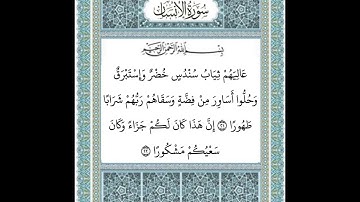 سورة الإنسان
بسم الله الرحمن الرحيم
عَالِيَهُمْ ثِيَابُ سُنْدُسٍ خُضْرٌ وَإِسْتَبْرَقٌ
وَحُلُّوا أَسَاوِرَ مِنْ فِضَّةٍ وَسَقَاهُمْ رَبُّهُمْ شَرَابًا
طَهُورًا ﴿٢١﴾ إِنَّ هَذَا كَانَ لَكُمْ جَزَاءً وَكَانَ
سَعْيُكُمْ مَشْكُورًا ﴿٢٢﴾